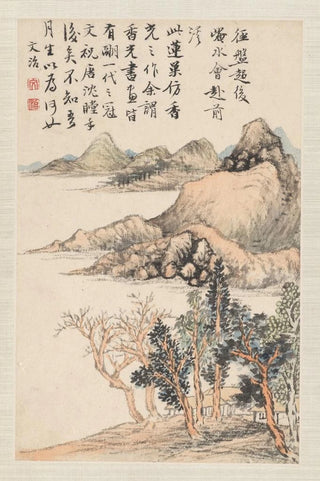 徑盤超後
水會赴前
溪
此蓮巢仿香
光之作余謂
香光書畫皆
有朙一代之冠
文祝唐沈瞠乎
後矣不知吾
月生以為何如
文治